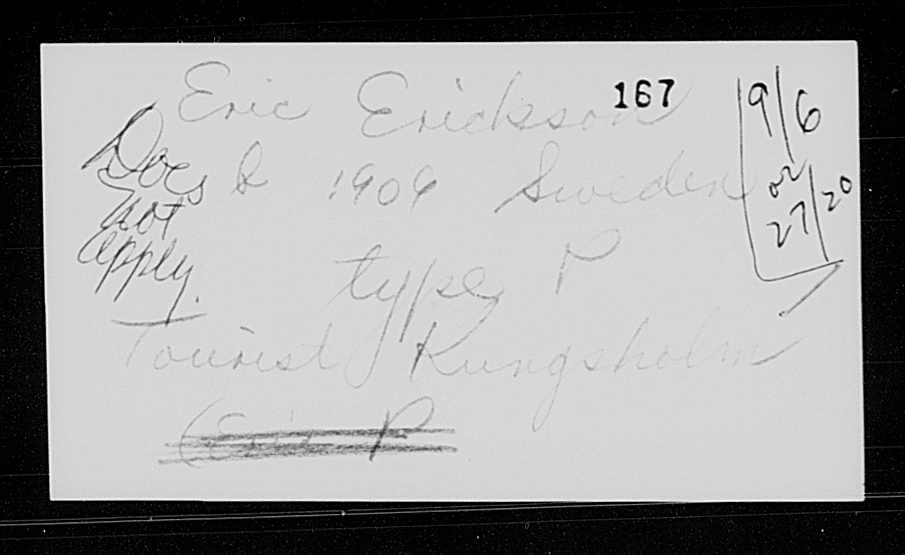 Eric Erickson 167
19/6
or
27/20
Does
not
apply.
b 1909 Sweden
type P
Tourist Kungsholm
(Eric P